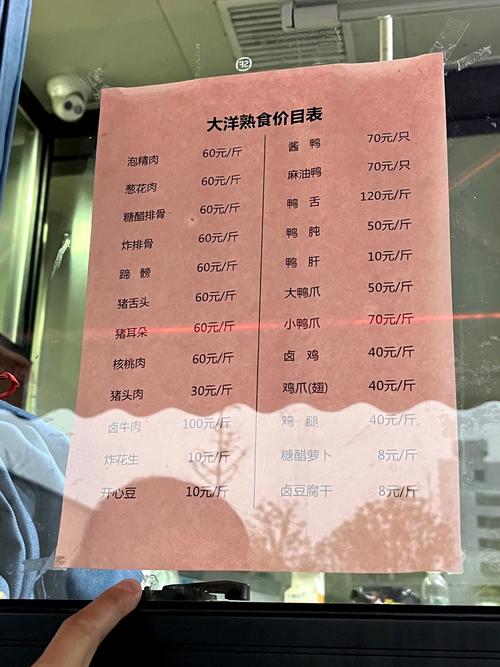 大洋熟食价目表
泡精肉 60元/斤
葱花肉 60元/斤
糖醋排骨 60元/斤
炸排骨 60元/斤
蹄 髈 60元/斤
猪舌头 60元/斤
猪耳朵 60元/斤
核桃肉 60元/斤
猪头肉 30元/斤
卤牛肉 100元/斤
炸花生 10元/斤
开心豆 10元/斤
酱 鸭 70元/只
麻油鸭 70元/只
鸭 舌 120元/斤
鸭 肫 50元/斤
鸭 肝 10元/斤
大鸭爪 50元/斤
小鸭爪 70元/斤
卤 鸡 40元/斤
鸡爪(翅) 40元/斤
鸡 腿 40元/斤
糖醋萝卜 8元/斤
卤豆腐干 8元/斤